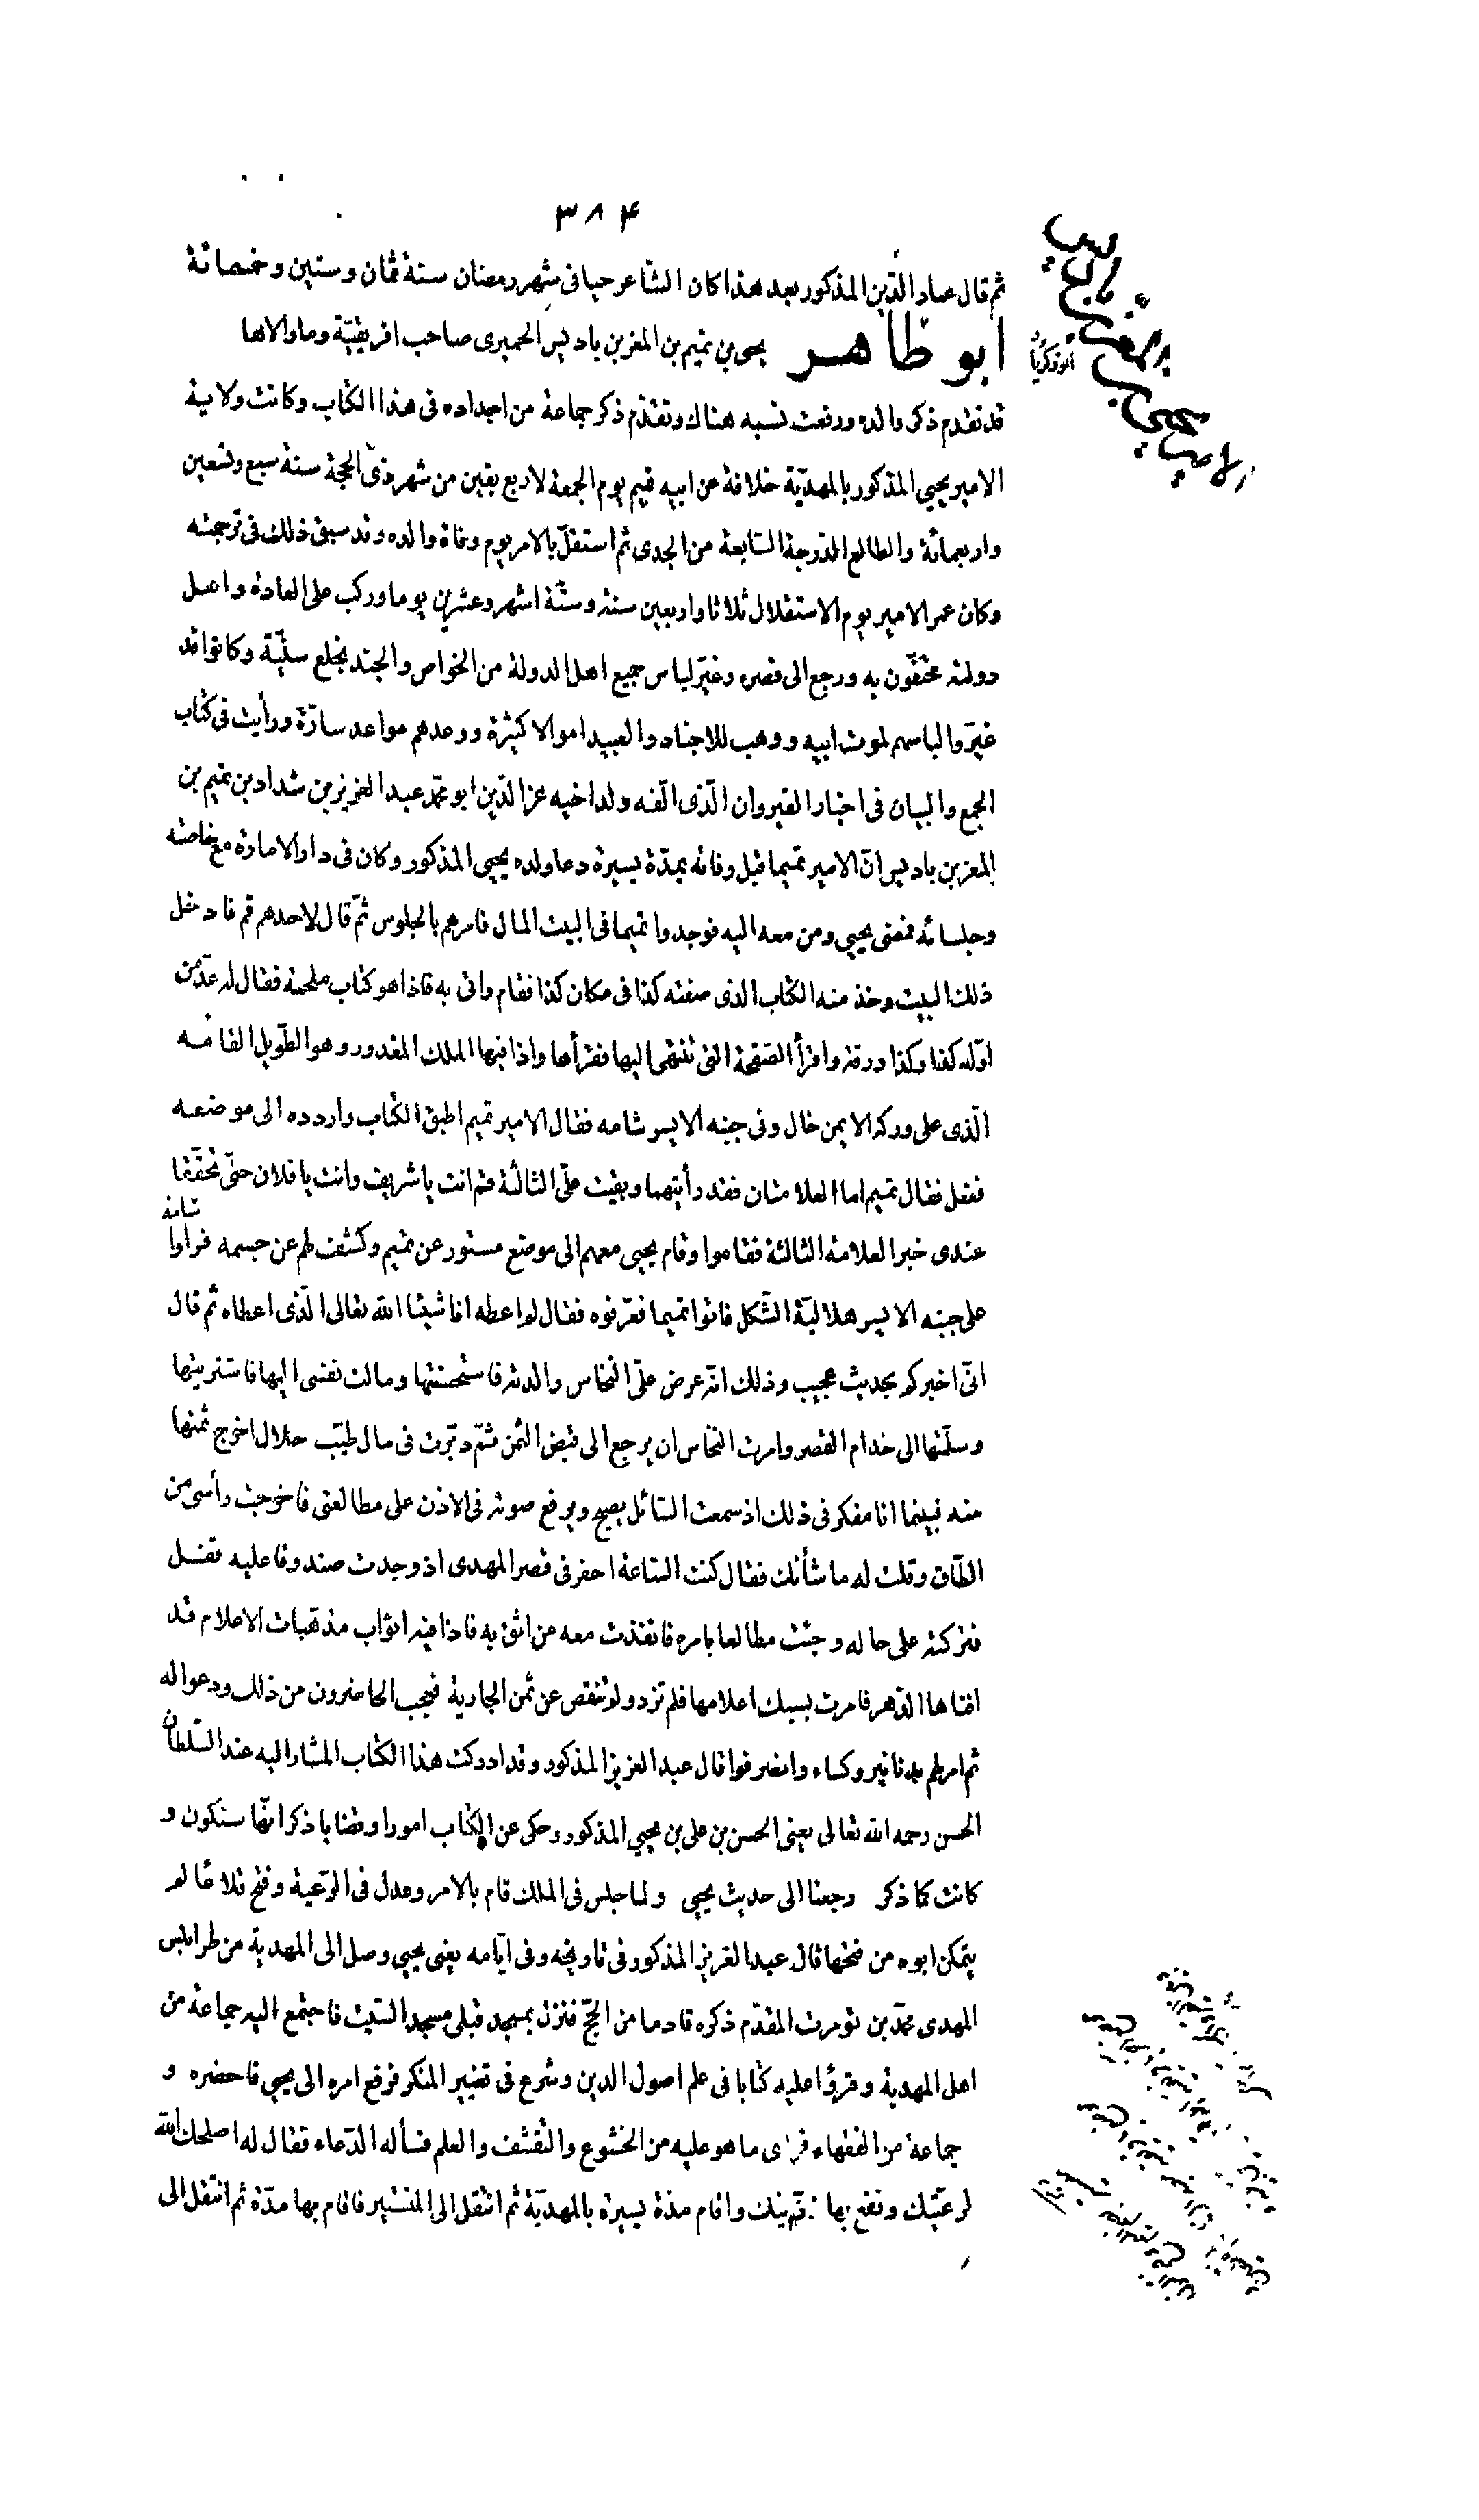 ٣٨۴
ثم قال عماد الدّين المذكور بعد هذا كان الشاعر حيا فى شهر رمضان سنة ثمان وستين وخمسمائة
ابو طاهر يحيى بن تميم بن المعز بن باديس الحميرى صاحب افريقيّة وما والاها
ابو زكريا
الامير يحيى بن تميم بن المعز بن باديس
قد تقدم ذكر والده ورفعت نسبه هناك وتقدّم ذكر جماعة من اجداده فى هذا الكتاب وكانت ولاية
الامير يحيى المذكور بالمهديّة خلافة عن ابيه تميم يوم الجمعة لاربع بقين من شهر ذى الحجة سنة سبع وتسعين
واربعمائة والطالع الدّرجة السّابعة من الجدى ثم استقلّ بالامر يوم وفاة والده وقد سبق ذلك فى ترجمته
وكان عمر الامير يوم الاستقلال ثلاثا واربعين سنة وستّة اشهر وعشرين يوما وركب على العادة واهل
دولته محتفّون به ورجع الى قصره وغيّر لباس جميع اهل الدولة من الخواص والجند بخلع سنيّة وكانوا قد
غيّروا لباسهم لموت ابيه ووهب للاجناد والعبيد اموالا كثيرة ووعدهم مواعد سارّة ورأيت فى كتاب
الجمع والبيان فى اخبار القيروان الّذى الّفه ولد اخيه عز الدّين ابو محمّد عبد العزيز بن شداد بن تميم بن
المعز بن باديس انّ الامير تميما قبل وفاته بمدّة يسيرة دعا ولده يحيى المذكور وكان فى دار الامارة مع خاصته
وجلسائه فمضى يحيى ومن معه اليه فوجدوا تميما فى البيت المال فامرهم بالجلوس ثمّ قال لاحدهم قم فادخل
ذلك البيت وخذ منه الكتاب الذى صفته كذا فى مكان كذا فقام واتى به فاذا هو كتاب ملحمة فقال له عدّ من
اوّله كذا وكذا ورقة واقرأ الصّفحة التى تنتهى اليها فقرأها واذا فيها الملك المغدور وهو الطّويل القامة
الّذى على وركه الايمن خال وفى جنبه الايسر شامه فقال الامير تميم اطبق الكتاب واردده الى موضعه
ففعل فقال تميم اما العلامتان فقد رأيتهما وبقيت علىّ الثالثة قم انت يا شريف وانت يا فلان حتّى تحقّقا
عندى خبر العلامة الثالثة فقاموا وقام يحيى معهم الى موضع مستور عن تميم وكشف لهم عن جسمه فراوا شامة
على جنبه الايسر هلاليّة الشّكل فاتوا تميما فعرّفوه فقال لم اعطه انا شيئا الله تعالى الّذى اعطاه ثم قال
انّى اخبركم بحديث عجيب وذلك انّه عرض علىّ النخاس والدته فاستحسنتها ومالت نفسى اليها فاشتريتها
وسلّمتها الى خدام القصر وامرت النخاس ان يرجع الى قبض الثمن ثمّ دبّرت فى مال طيّب حلال اخرج ثمنها
منه فبينما انا مفكر فى ذلك اذ سمعت السّائل يصيح ويرفع صوته فى الاذن على مطالعتى فاخرجت رأسى من
الطّاق وقلت له ما شأنك فقال كنت السّاعة احفر فى قصر المهدى اذ وجدت صندوقا عليه قفل
فتركته على حاله وجئت مطالعا بامره فانفذت معه من اثق به فاذا فيه اثواب مذهبات الاعلام قد
افناها الدّهر فامرت بسبك اعلامها فلم تزد ولم تنقص عن ثمن الجارية فعجب الحاضرون من ذلك ودعوا له
ثم امر لهم بدنانير وكساء وانصرفوا قال عبد العزيز المذكور وقد ادركت هذا الكتاب المشار اليه عند السّلطان
الحسن رحمه الله تعالى يعنى الحسن بن على بن يحيى المذكور وحكى عن الكتاب امورا وقضايا ذكر انّها ستكون و
كانت كما ذكر رجعنا الى حديث يحيى ولما جلس فى الملك قام بالامر وعدل فى الرّعية وفتح قلاعا لم
يتمكن ابوه من فتحها قال عبد العزيز المذكور فى تاريخه وفى ايّامه يعنى يحيى وصل الى المهدية من طرابلس
المهدى محمّد بن تومرت المقدّم ذكره قادما من الحجّ فنزل بمسجد قبلى مسجد السّبت فاجتمع اليه جماعة من
اهل المهدية وقرؤا عليه كتابا فى علم اصول الدين وشرع فى تغيير المنكر فرفع امره الى يحيى فاحضره و
جماعة من الفقهاء فرأى ما هو عليه من الخشوع والتقشف والعلم فسأله الدّعاء فقال له اصلحك الله
لرعيّتك ونفع بها ذرّيتك واقام مدّة يسيرة بالمهديّة ثم انتقل الى المنستير فاقام بها مدّة ثم انتقل الى